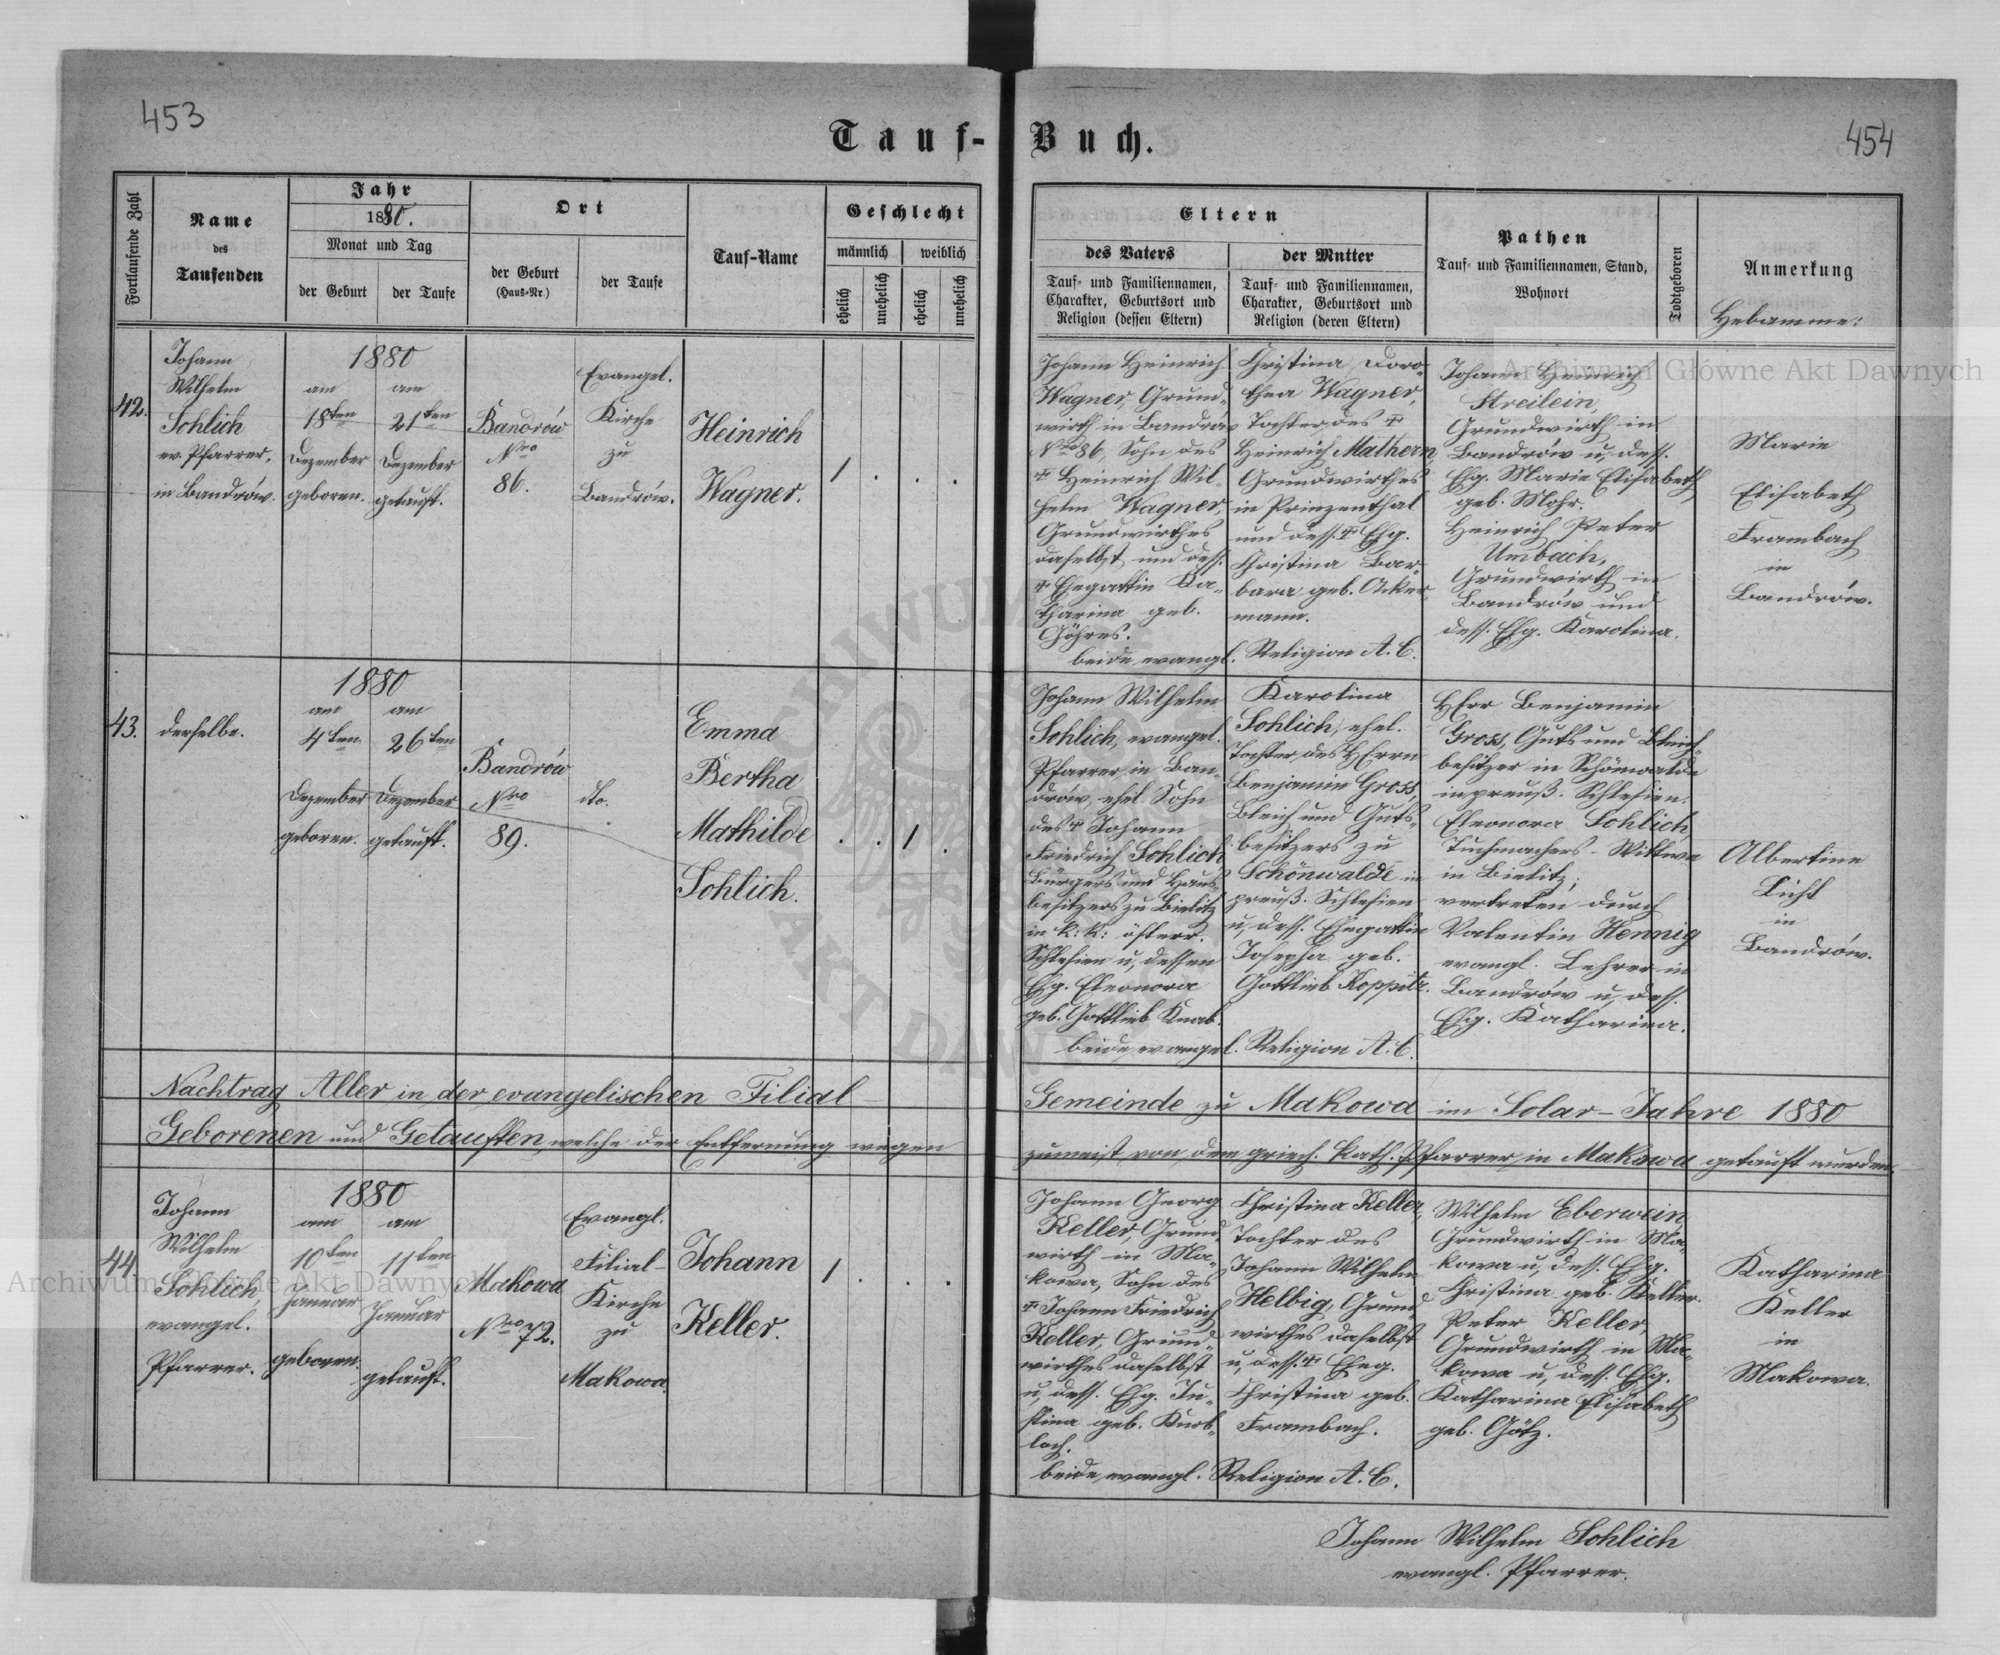 453
454
Tauf-Buch.
Fortlaufende Zahl
Name
des
Taufenden
Jahr
1880.
Monat und Tag
der Geburt
der Taufe
Ort
der Geburt
(Haus-Nr.)
der Taufe
Tauf-Name
Geschlecht
männlich
weiblich
ehelich
unehelich
ehelich
unehelich
Eltern
des Vaters
Tauf- und Familiennamen,
Charakter, Geburtsort und
Religion (dessen Eltern)
der Mutter
Tauf- und Familiennamen,
Charakter, Geburtsort und
Religion (deren Eltern)
Pathen
Tauf- und Familiennamen, Stand,
Wohnort
Todtgeboren
Anmerkung
Hebamme:
42.
Johann
Wilhelm
Sohlich
ev. Pfarrer,
in Bandrów.
1880
am
18ten
Dezember
geboren.
am
21ten
Dezember
getauft.
Bandrów
Nro
86.
Evangel.
Kirche
zu
Bandrów.
Heinrich
Wagner.
1 . . .
Johann Heinrich
Wagner, Grund-
wirth in Bandrów
Nro 86, Sohn des
† Heinrich Wil-
helm Wagner,
Grundwirthes
daselbst und dess.
† Ehegattin Ka-
tharina geb.
Göhres.
Christina Doro-
thea Wagner,
Tochter des †
Heinrich Mathern
Grundwirthes
in Prinzenthal
und dess. † Ehg.
Christina Bar-
bara geb. Acker-
mann.
beide evangl. Religion A. C.
Johann Heinrich
Streilein,
Grundwirth in
Bandrów u, dess.
Ehg. Marie Elisabeth
geb. Mohr.
Heinrich Peter
Umbach,
Grundwirth in
Bandrów und
dess. Ehg. Karolina.
Marie
Elisabeth
Frambach
in
Bandrów.
43.
derselbe.
1880
am
4ten
Dezember
geboren.
am
26ten
Dezember
getauft.
Bandrów
Nro
89.
dto.
Emma
Bertha
Mathilde
Sohlich.
. . 1 .
Johann Wilhelm
Sohlich, evangel.
Pfarrer in Ban-
drów, ehel. Sohn
des † Johann
Friedrich Sohlich
Bürgers und Haus-
besitzers zu Bielitz
in k: k: österr.
Schlesien u, dessen
Ehg. Eleonora
geb. Gottlieb Knab.
Karolina
Sohlich, ehel.
Tochter des HErrn
Benjamin Gross,
Bleich und Guts-
besitzers zu
Schönwalde in
preuß. Schlesien
u, dess. Ehegattin
Josepha geb.
Gottlieb Koppitz.
beide evangel. Religion A. C.
HErr Benjamin
Gross, Guts und Bleich-
besitzer in Schönwalde
in preuß. Schlesien.
Eleonora Sohlich
Tuchmachers-Wittwe
in Bielitz;
vertreten durch
Valentin Hennig
evangl. Lehrer in
Bandrów u, dess.
Ehg. Katharina.
Albertine
Licht
in
Bandrów.
Nachtrag Aller in der evangelischen Filial-Gemeinde zu Makowa im Solar-Jahre 1880
Geborenen und Getauften, welche der Entfernung wegen zumeist von dem griech. kath. Pfarrer in Makowa getauft wurden.
44
Johann
Wilhelm
Sohlich,
evangel.
Pfarrer.
1880
am
10ten
Januar
geboren.
am
11ten
Januar
getauft.
Makowa
Nro 72.
Evangl.
Filial-
Kirche
zu
Makowa.
Johann
Keller.
1 . . .
Johann Georg
Keller, Grund-
wirth in Ma-
kowa, Sohn des
† Johann Friedrich
Keller, Grund-
wirthes daselbst
u, dess. Ehg. Ju-
stina geb. Knob-
loch.
Christina Keller,
Tochter des
Johann Wilhelm
Helbig, Grund-
wirthes daselbst
u, dess. † Eheg.
Christina geb.
Frambach.
beide evangl. Religion A. C.
Wilhelm Eberwein,
Grundwirth in Ma-
kowa u, dess. Ehg.
Christina geb. Keller.
Peter Keller,
Grundwirth in Ma-
kowa u, dess. Ehg.
Katharina Elisabeth
geb. Götz.
Katharina
Keller
in
Makowa.
Johann Wilhelm Sohlich
evangl. Pfarrer.
Archiwum Główne Akt Dawnych
Archiwum Główne Akt Dawnych